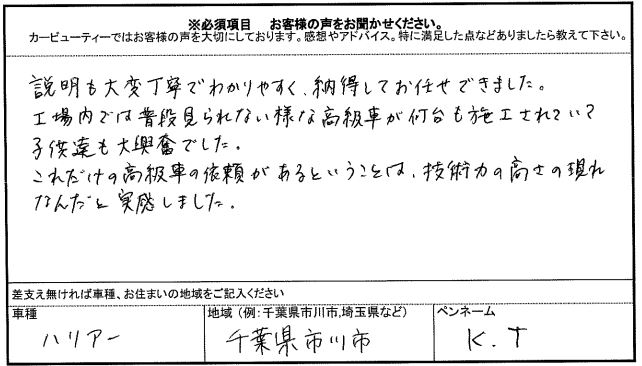 ※必須項目　お客様の声をお聞かせください。
カービューティーではお客様の声を大切にしております。感想やアドバイス。特に満足した点などありましたら教えて下さい。
説明も大変丁寧でわかりやすく、納得してお任せできました。
工場内では普段見られない様な高級車が何台も施工されていて
子供達も大興奮でした。
これだけの高級車の依頼があるということは、技術力の高さの現れ
なんだと実感しました。
差支え無ければ車種、お住まいの地域をご記入ください
車種
地域（例：千葉県市川市,埼玉県など）
ペンネーム
ハリアー
千葉県市川市
K.T